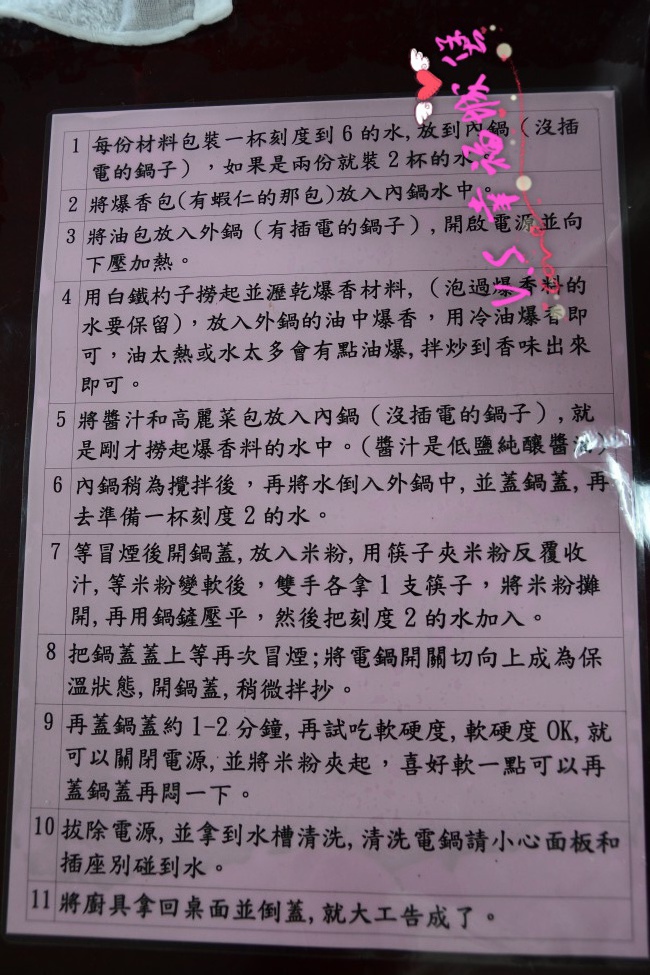 1 每份材料包裝一杯刻度到6的水,放到內鍋（沒插
電的鍋子），如果是兩份就裝2杯的水
2 將爆香包(有蝦仁的那包)放入內鍋水中。
3 將油包放入外鍋（有插電的鍋子）,開啟電源並向
下壓加熱。
4 用白鐵杓子撈起並瀝乾爆香材料,（泡過爆香料的
水要保留），放入外鍋的油中爆香，用冷油爆香即
可，油太熱或水太多會有點油爆,拌炒到香味出來
即可。
5 將醬汁和高麗菜包放入內鍋（沒插電的鍋子）,就
是剛才撈起爆香料的水中。(醬汁是低鹽純釀醬
6 內鍋稍為攪拌後，再將水倒入外鍋中,並蓋鍋蓋,再
去準備一杯刻度2的水。
7 等冒煙後開鍋蓋,放入米粉,用筷子夾米粉反覆收
汁,等米粉變軟後，雙手各拿1支筷子，將米粉攤
開,再用鍋鏟壓平，然後把刻度2的水加入。
8 把鍋蓋蓋上等再次冒煙;將電鍋開關切向上成為保
溫狀態,開鍋蓋,稍微拌抄。
9 再蓋鍋蓋約1-2分鐘,再試吃軟硬度,軟硬度OK,就
可以關閉電源,並將米粉夾起，喜好軟一點可以再
蓋鍋蓋再悶一下。
10 拔除電源,並拿到水槽清洗,清洗電鍋請小心面板和
插座別碰到水。
11 將廚具拿回桌面並倒蓋,就大工告成了。